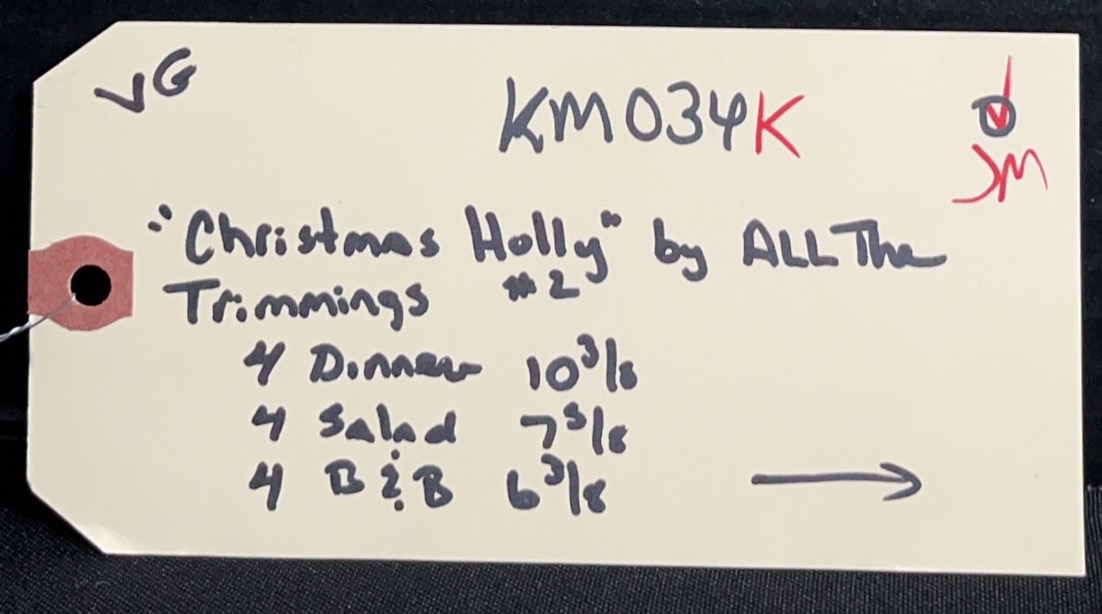 VG
KM034K
JM
"Christmas Holly" by ALL The
Trimmings #2
4 Dinner 10 3/8
4 Salad 7 5/8
4 B & B 6 3/8